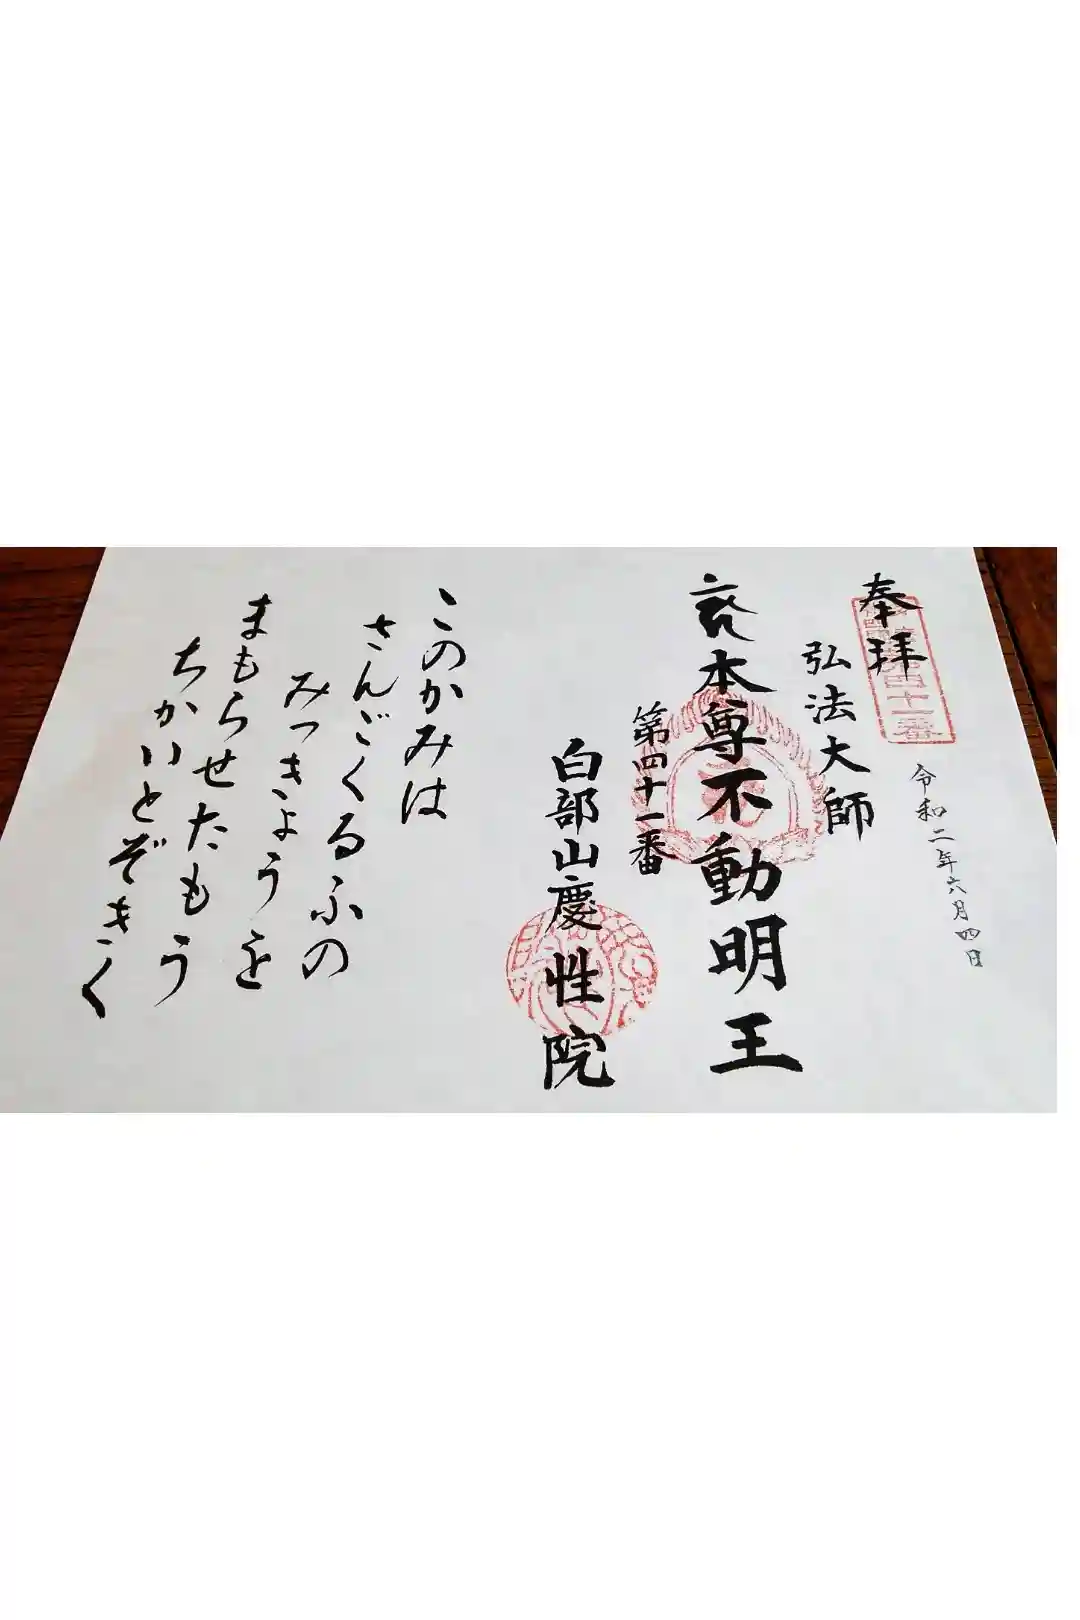 奉拝
令和二年六月四日
弘法大師
本尊不動明王
第四十一番
白部山慶性院
このかみは
さんごくるふの
みつきょうを
まもらせたもう
ちかいとぞきく